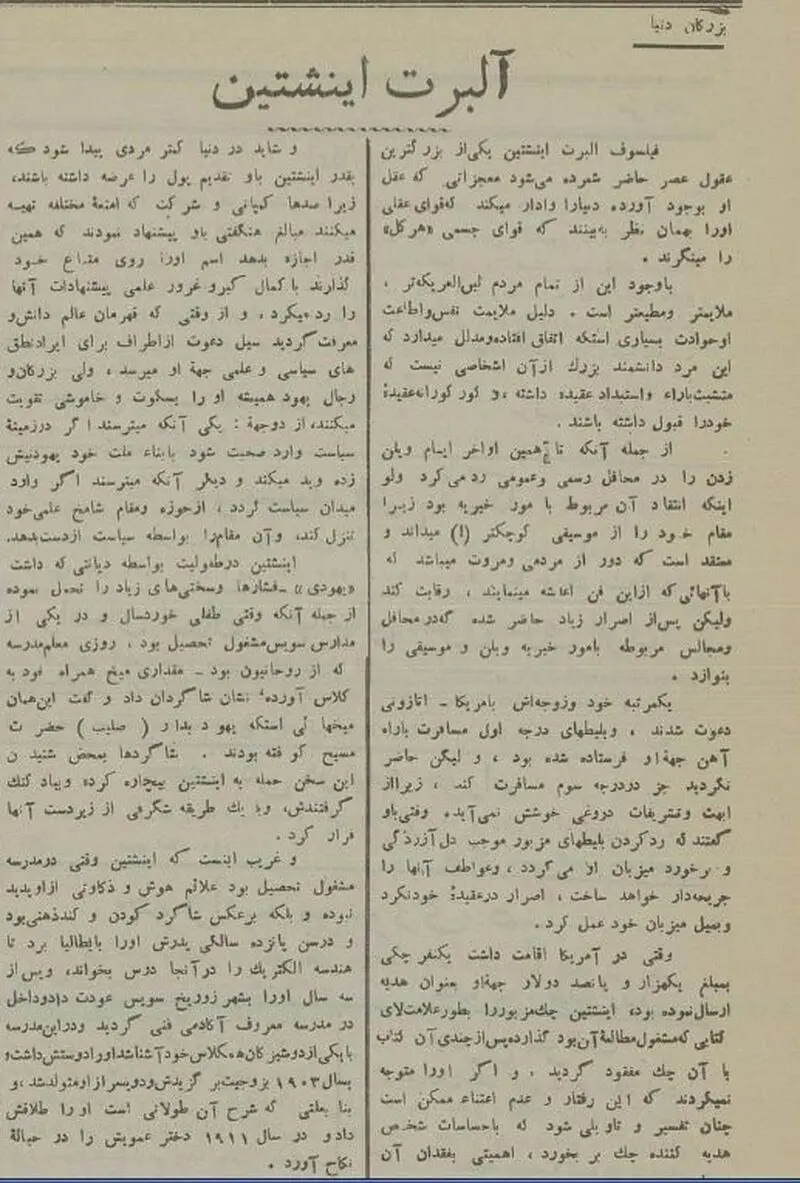 بزرگان دنیا
آلبرت اینشتین
فیلسوف البرت اینشتین یکی‌از بزرگترین
عقول عصر حاضر شمرده می‌شود معجزاتی که عقل
او بوجود آورده دنیارا وادار میکند که‌قوای عقلی
اورا بهمان نظر به‌بینند که قوای جسمی «هرکل»
را مینگرند .
باوجود این از تمام مردم لین‌العریکه‌تر ،
ملایمتر ومطیعتر است . دلیل ملایمت نفس‌واطاعت
اوحوادث بسیاری استکه اتفاق افتاده‌ومدلل میدارد که
این مرد دانشمند بزرك ازآن اشخاصی نیست که
متشبث‌باراء واستبداد عقیده داشته ، کور کورانه‌عقیدهٔ
خودرا قبول داشته باشند .
از جمله آنکه تا همین اواخر ایام ویلن
زدن را در محافل رسمی وعمومی رد می‌کرد ولو
اینکه انتقاد آن مربوط با مور خیریه بود زیرا
مقام خود را از موسیقی کوچکتر (!) میداند و
معتقد است که دور از مردمی ومروت میباشد که
باآنهائی‌که ازاین فن اعاشه مینمایند ، رقابت کند
ولیکن پس‌از اصرار زیاد حاضر شده که‌درمحافل
ومجالس مربوطه بامور خیریه ویلن و موسیقی را
بنوازد .
یکمرتبه خود وزوجه‌اش بامریکا - اتازونی
دعوت شدند ، وبلیطهای درجه اول مسافرت باراه
آهن جهة‌او فرستاده شده بود ، و لیکن حاضر
نگردید جز دردرجه سوم مسافرت کند ، زیرااز
ابهت وتشریفات دروغی خوشش نمی‌آید، وقتی‌باو
گفتند که ردکردن بلیطهای مزبور موجب دل‌آزردگی
و برخورد میزبان او می‌گردد ، وعواطف آنها را
جریحه‌دار خواهد ساخت ، اصرار درعقیدهٔ خودنکرد
وبمیل میزبان خود عمل کرد .
وقتی در آمریکا اقامت داشت یکنفر چکی
بمبلغ یکهزار و پانصد دولار جهة‌او بعنوان هدیه
ارسال‌نموده بود، اینشتین چك‌مزبوررا بطورعلامت‌لای
کتابی که‌مشغول‌مطالعهٔ آن‌بود گذارده‌پس‌ازچندی‌آن کتاب
با آن چك مفقود گردید . و اگر اورا متوجه
نمیکردند که این رفتار و عدم اعتناء ممکن است
چنان تفسیر و تاویلی شود که باحساسات شخص
هدیه کننده چك بر بخورد ، اهمیتی بفقدان آن
و شاید در دنیا کمتر مردی پیدا شود که
بقدر اینشتین باو تقدیم پول را عرضه داشته باشند،
زیرا صدها کمپانی و شرکت که امتعهٔ مختلفه تهیه
میکنند مبالغ هنگفتی باو پیشنهاد نمودند که همین
قدر اجازه بدهد اسم اورا روی متاع خود
گذارند باکمال کبرو غرور علمی پیشنهادات آنها
را رد میکرد ، و از وقتی که قهرمان عالم دانش‌و
معرفت‌گردید سیل دعوت ازاطراف برای ایرادنطق
های سیاسی و علمی جهة او میرسد ، ولی بزرگان‌و
رجال یهود همیشه او را بسکوت و خاموشی تقویت
میکنند، از دوجهة : یکی آنکه میترسند اگر درزمینهٔ
سیاست وارد صحبت شود بابناء ملت خود یهودنیش
زده وبد میکند و دیگر آنکه میترسند اگر وارد
میدان سیاست گردد ، ازحوزه ومقام شامخ علمی‌خود
تنزل کند، وآن مقام‌را بواسطه سیاست ازدست‌بدهد.
اینشتین درطفولیت بواسطه دیانتی که داشت
«یهودی» ـ فشارها وسختی‌های زیاد را تحمل نموده
از جمله آنکه وقتی طفلی خوردسال و در یکی از
مدارس سویس‌مشغول تحصیل بود ، روزی معلم‌مدرسه
که از روحانیون بود ـ مقداری میخ همراه خود به
کلاس آورده، نشان شاگردان داد و گفت این‌همان
میخها ئی استکه یهود بدار ( صلیب ) حضرت
مسیح کوفته بودند . شاگردها بمحض شنیدن
این سخن حمله به اینشتین بیچاره کرده وبباد کتك
گرفتندش، وبا یك طریقه شگرفی از زیردست آنها
فرار کرد .
و غریب اینست که اینشتین وقتی درمدرسه
مشغول تحصیل بود علائم هوش و ذکاوتی ازاوپدید
نبوده و بلکه برعکس شاگرد کودن و کندذهنی‌بود
و درسن پانزده سالگی پدرش اورا بایطالیا برد تا
هندسه الکتریك را درآنجا درس بخواند، وپس‌از
سه سال اورا بشهر زوریخ سویس عودت دادوداخل
در مدرسه معروف آکادمی فنی گردید ودراین‌مدرسه
بایکی‌ازدوشیزگان‌هم‌کلاس‌خودآشناشداورادوستش‌داشت‌و
بسال۱۹۰۳ بزوجیت‌بر گزیدش‌ودوپسر‌ازاومتولدشد،و
بنا بعلتی که شرح آن طولانی است او را طلاقش
دادو در سال ۱۹۱۱ دختر عمویش را در حبالهٔ
نکاح آورد .